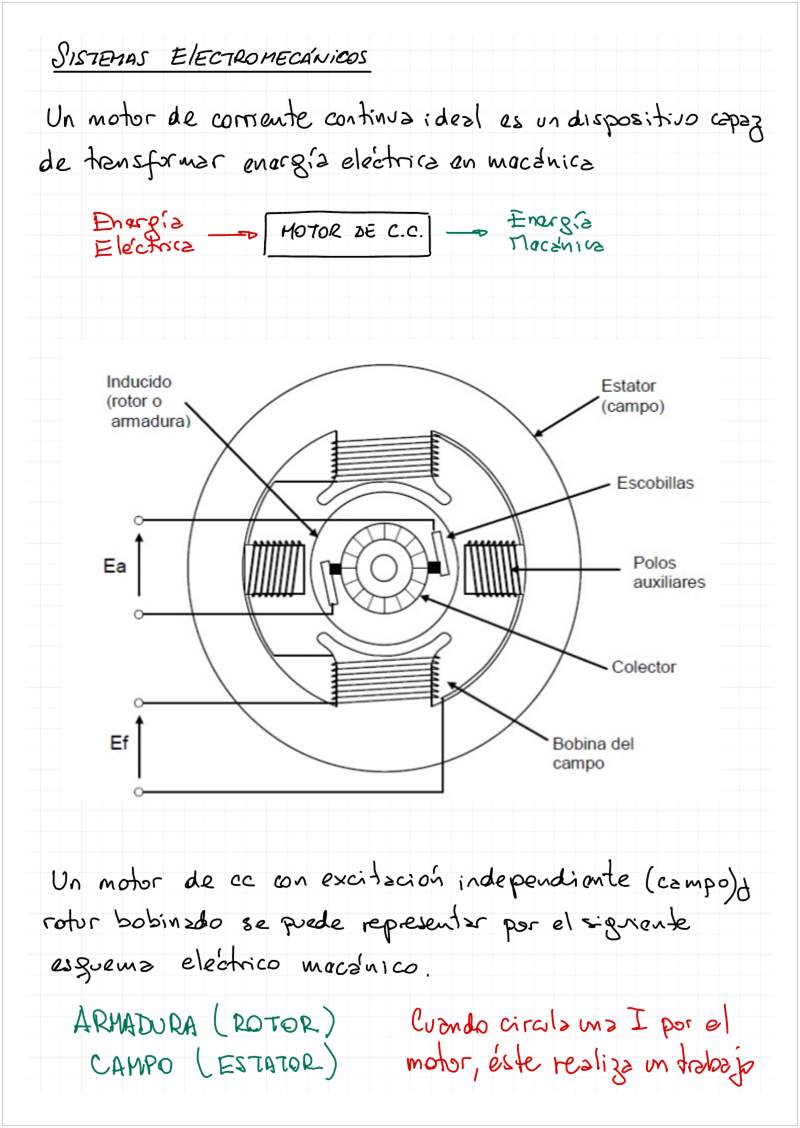 SISTEMAS ELECTROMECÁNICOS
Un motor de corriente continua ideal es un dispositivo capaz
de transformar energía eléctrica en mecánica
Energía
Eléctrica
MOTOR DE C.C.
Energía
Mecánica
Inducido
(rotor o
armadura)
Estator
(campo)
Escobillas
Ea
Polos
auxiliares
Colector
Ef
Bobina del
campo
Un motor de cc con excitación independiente (campo) y
rotor bobinado se puede representar por el siguiente
esquema eléctrico mecánico.
ARMADURA (ROTOR)
CAMPO (ESTATOR)
Cuando circula una I por el
motor, éste realiza un trabajo